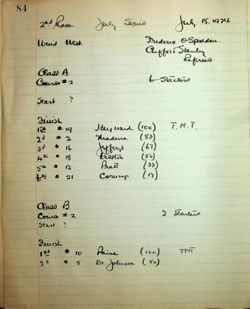 84
2nd Race July Series July 15, 1924
Wind West Frederic O Spedden
Clifford
Referees
Class A
Course # 2 6 Starters
Start ?
Finish
1st # 19 Hayward (100) T.M.T.
2d # 2 (83)
3d # 16 Jeffreys (67)
4th # 18 (50)
5th # 12 Pratt (33)
6th # 21 Corning (17)
Class B
Course # 2 2 Starters
Start ?
Finish
1st # 10 Paine (100) TNT
2d # 5 Dr. Johnson (50)